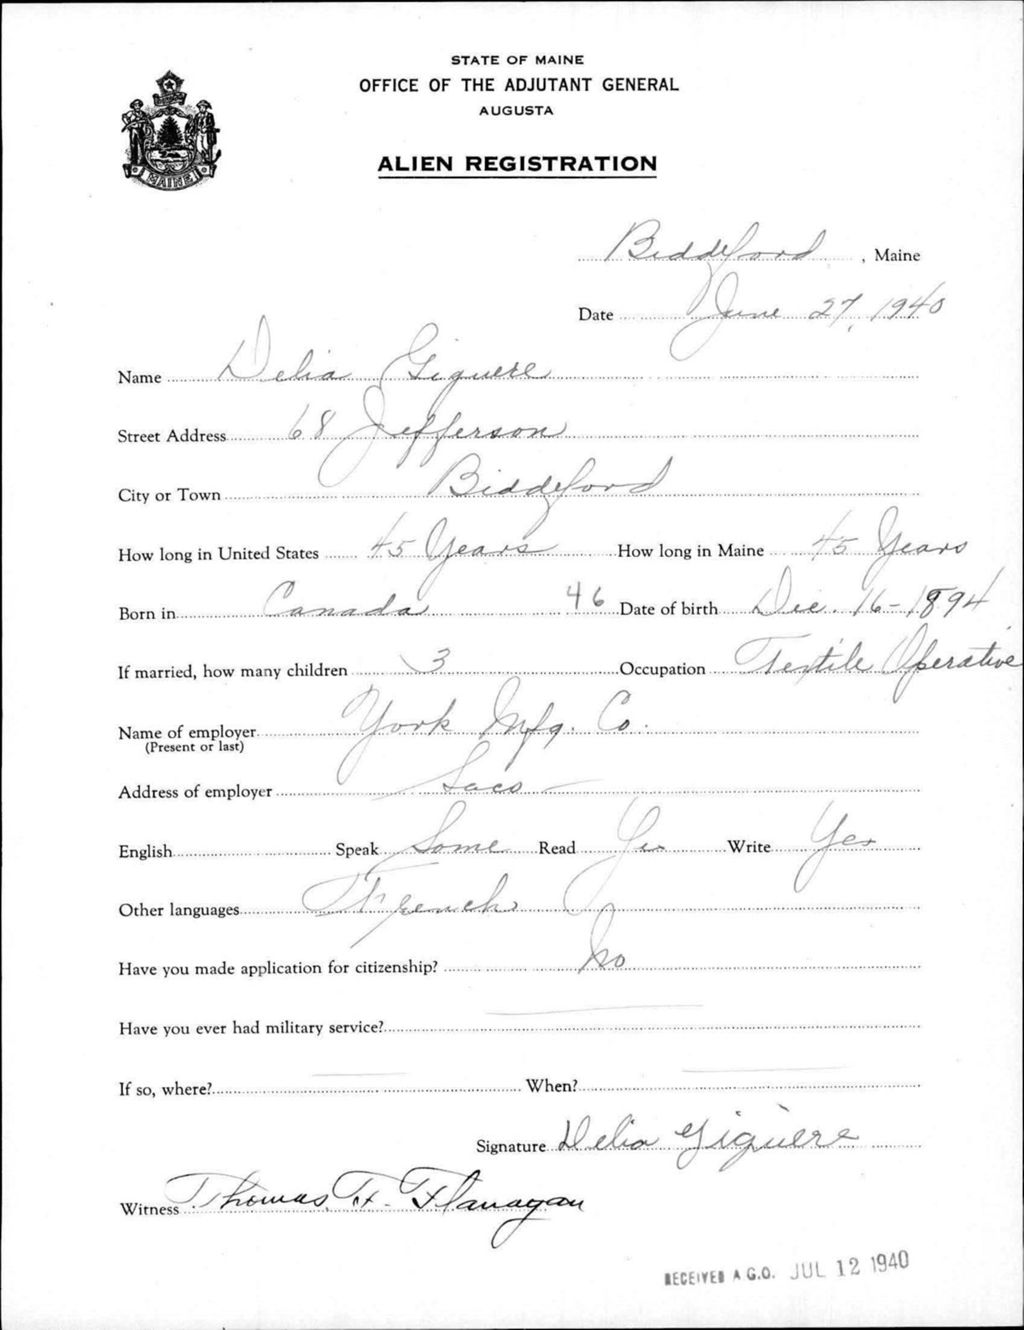 STATE OF MAINE
OFFICE OF THE ADJUTANT GENERAL
AUGUSTA
ALIEN REGISTRATION
MAINE
Biddeford, Maine
Date June 27, 1940
Name Delia Giguere
Street Address 68 Jefferson
City or Town Biddeford
How long in United States 45 Years How long in Maine 45 Years
Born in Canada 46 Date of birth Dec. 16-1894
If married, how many children 3 Occupation Textile Operative
Name of employer York Mfg. Co.
(Present or last)
Address of employer Saco
English Speak Some Read Yes Write Yes
Other languages French
Have you made application for citizenship? No
Have you ever had military service?
If so, where? When?
Signature Delia Giguère
Witness Thomas F. Flanagan
RECEIVED A.G.O. JUL 12 1940